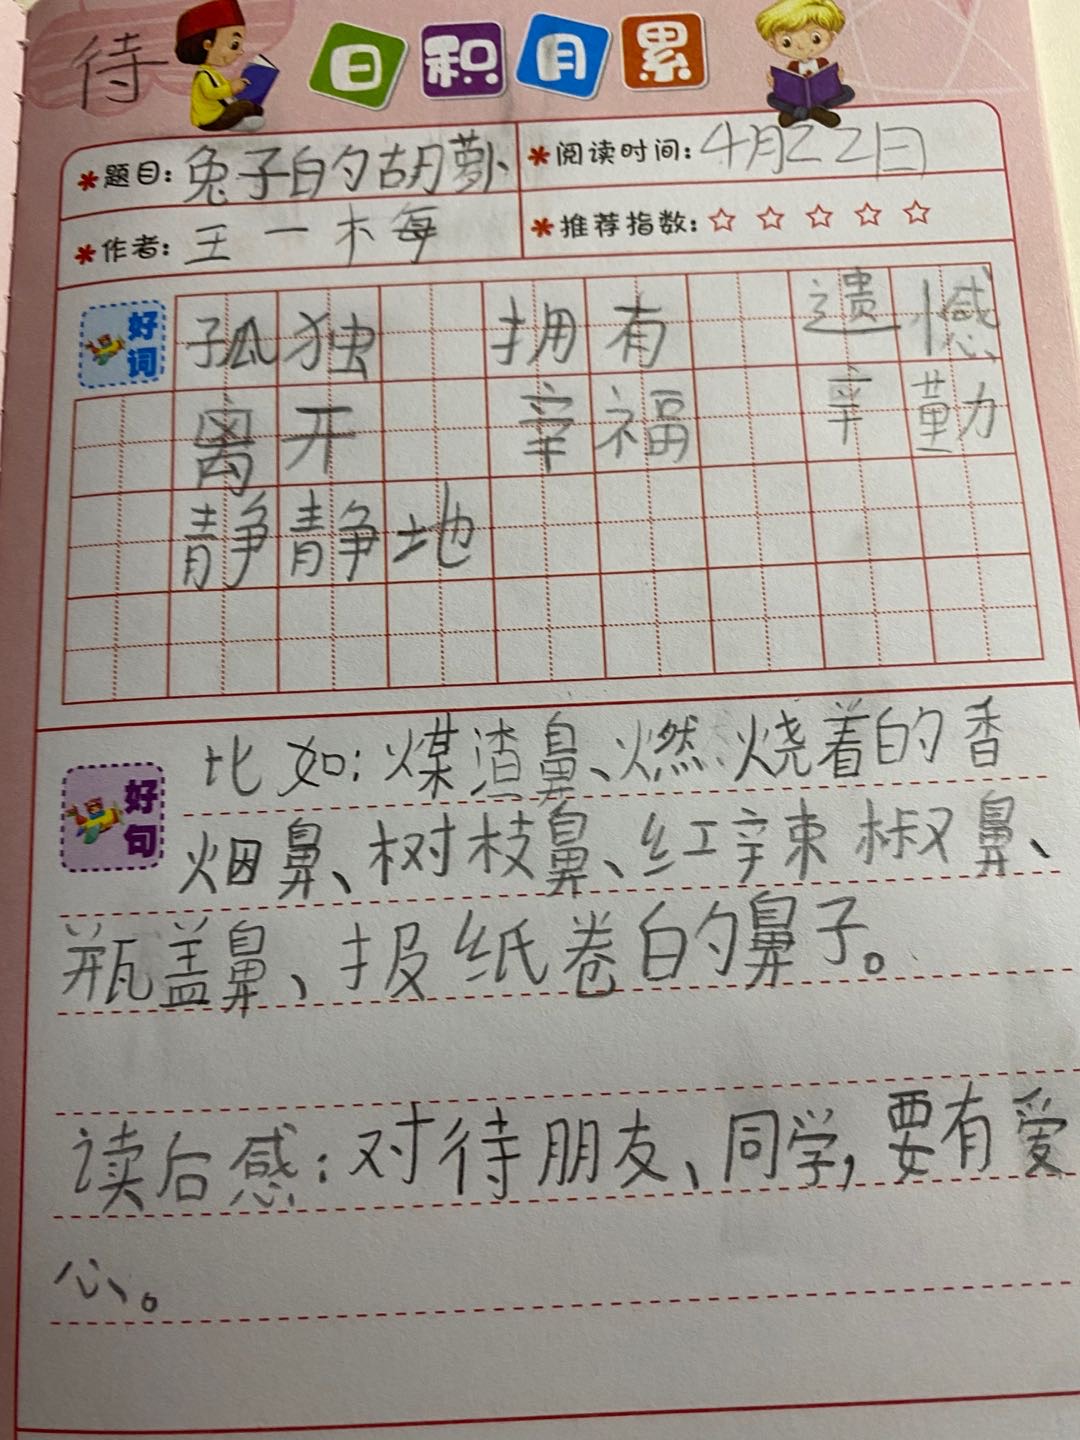 待
日积月累
题目：兔子的胡萝卜
阅读时间：4月22日
作者：王一梅
推荐指数：☆☆☆☆☆
好词
孤独 拥有 遗憾
离开 幸福 辛勤
静静地
好句
比如：煤渣鼻、燃烧着的香
烟鼻、树枝鼻、红辣椒鼻、
瓶盖鼻、报纸卷的鼻子。
读后感：对待朋友、同学，要有爱
心。